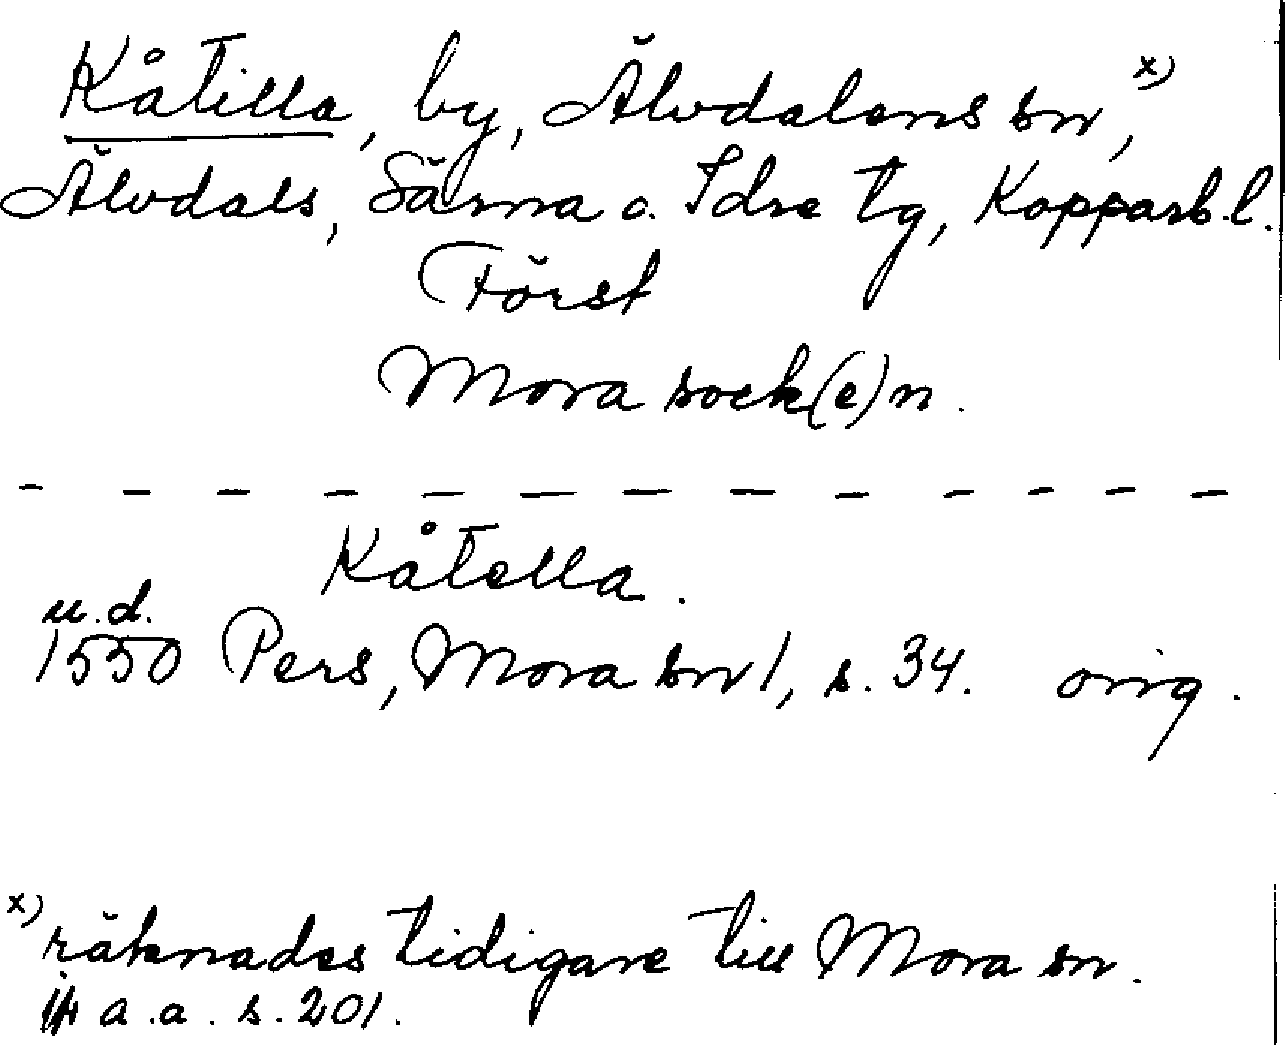 Kåtilla, by, Älvdalens sn, x)
Älvdals, Särna o. Idre tg, Kopparb.l.
Först
Mora sock(e)n.
Kåtella.
u.d.
1550 Pers, Mora sn 1, s. 34. orig.
x) räknades tidigare till Mora sn.
a.a. s. 201.